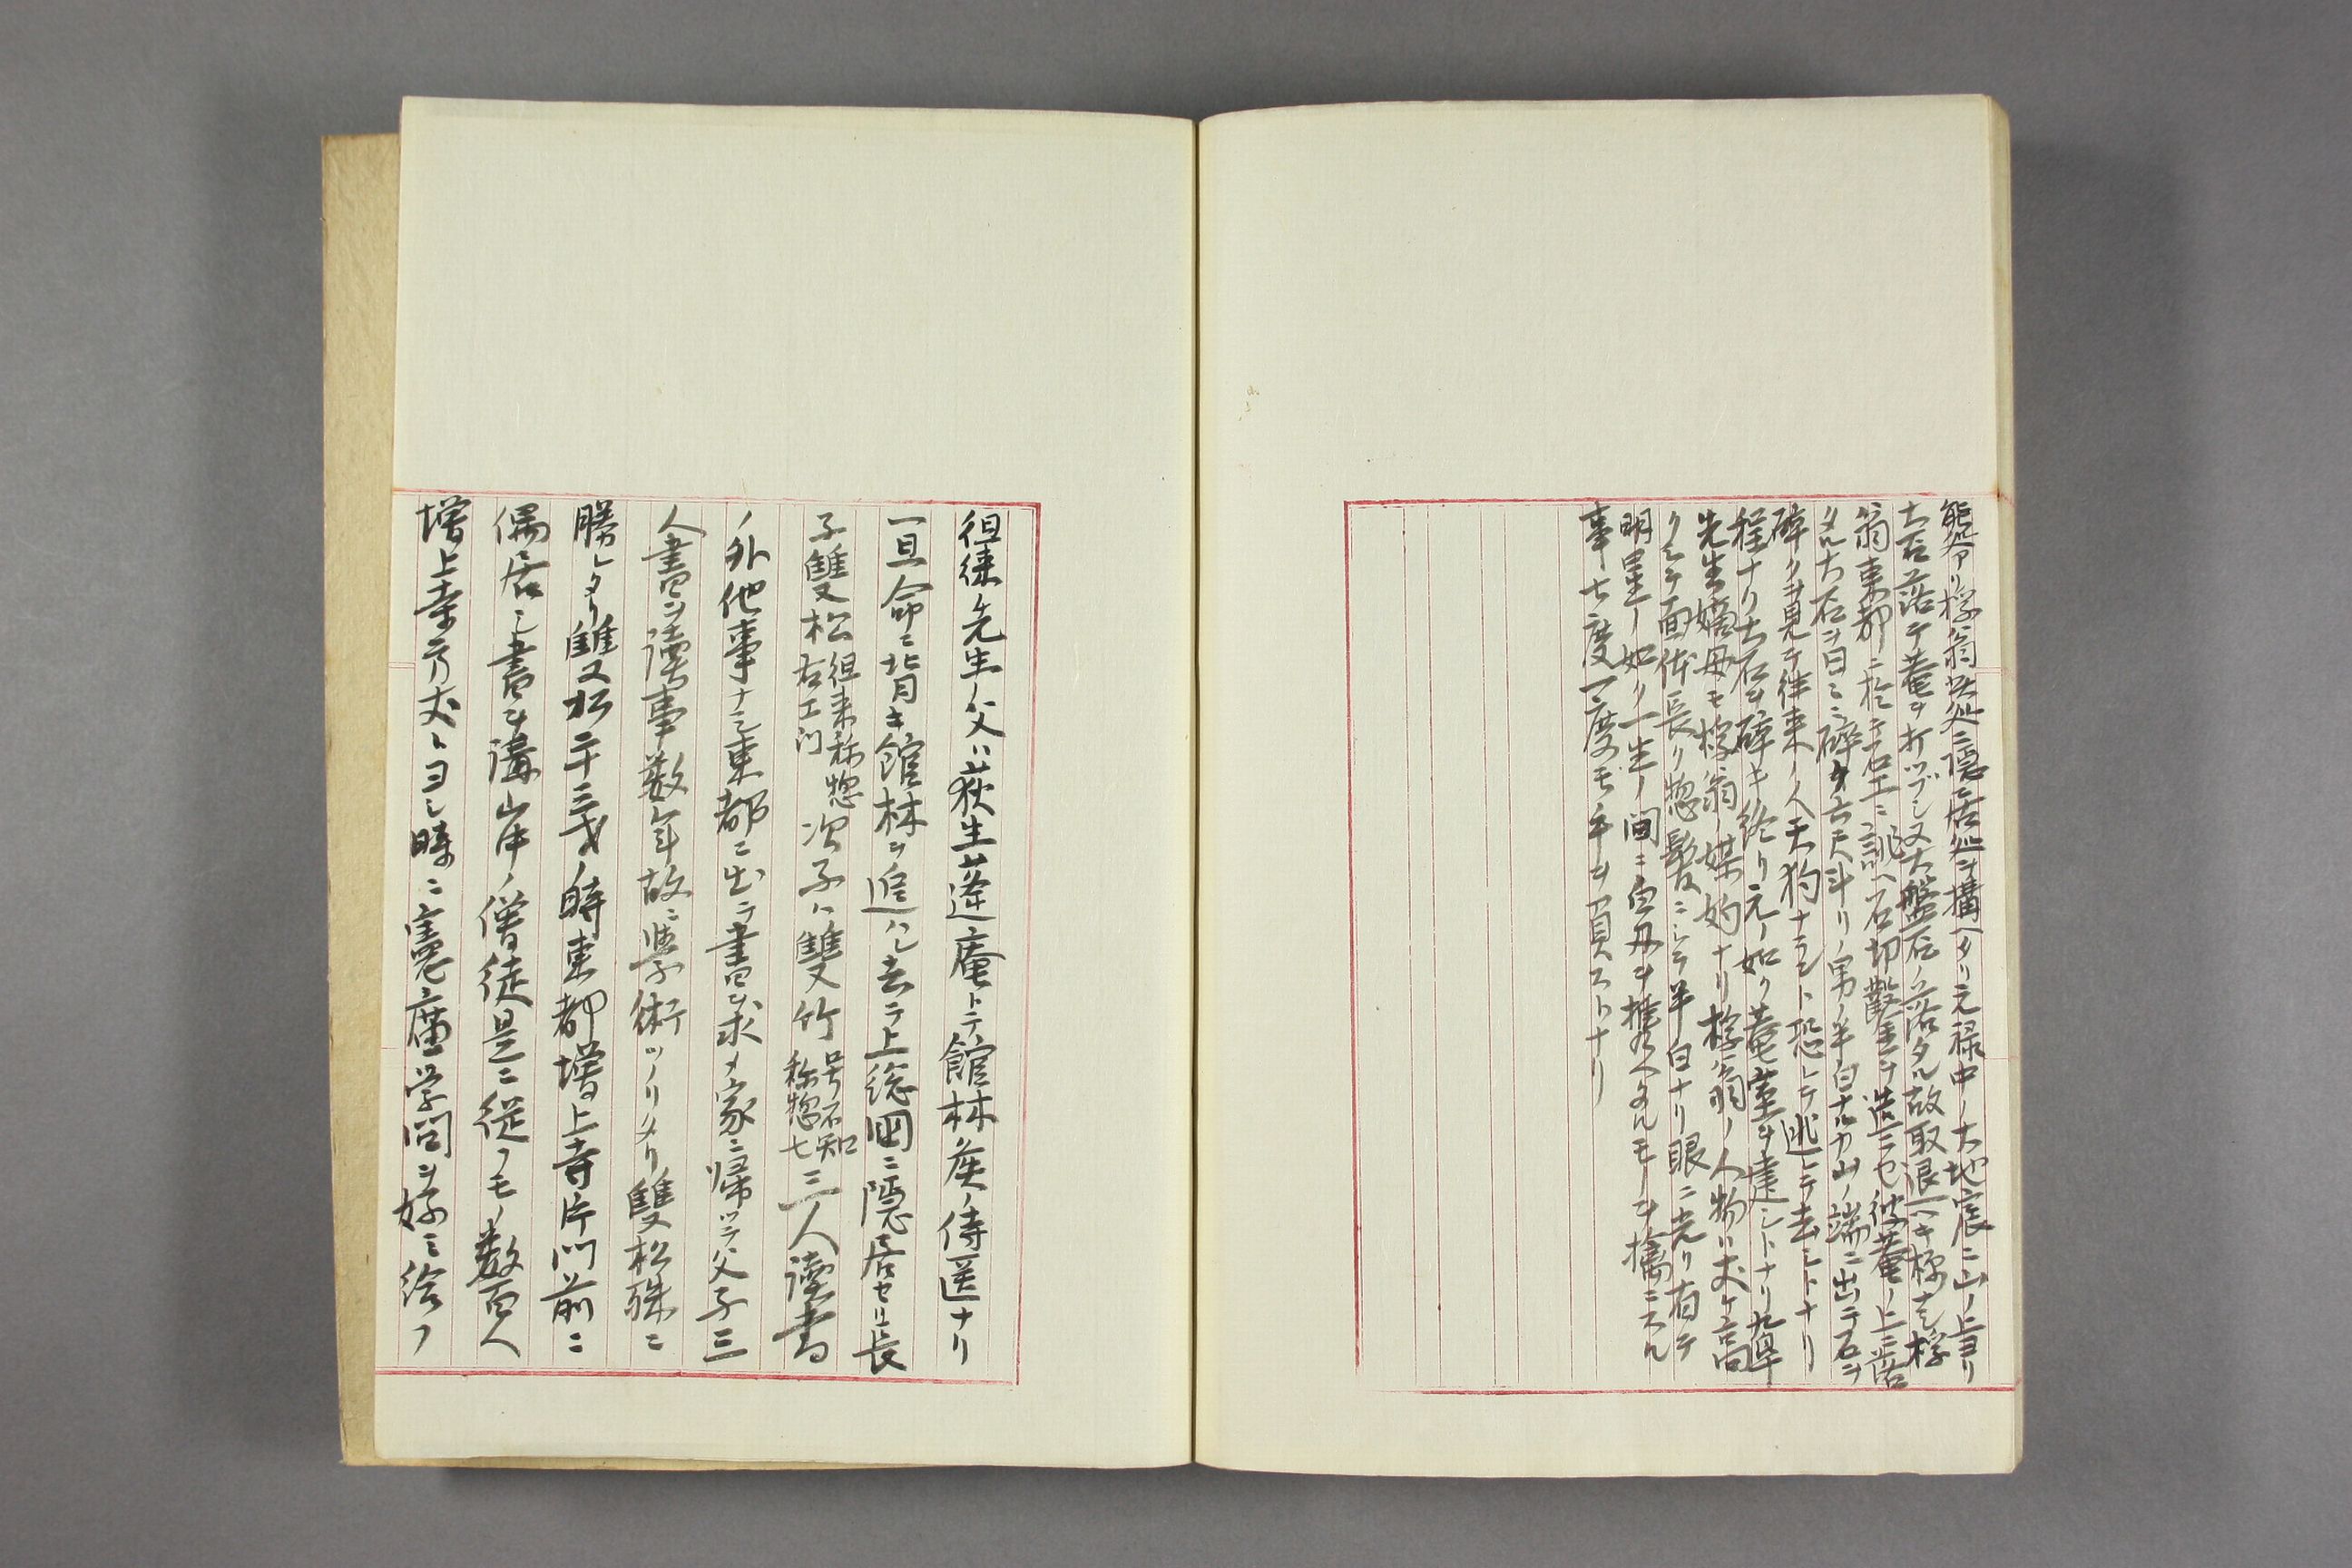 熊谷アリ樗翁此処ニ隠居処ヲ構ヘタリ元禄中ノ大地震ニ山ノ上ヨリ
大石落テ菴ヲ打ツブシ又大盤石ノ落タル故取退ヘキ様ナシ樗
翁東都ニ於テ石工ニ誂ヘ石切鑿ヲ造ラセ彼菴ノ上ニ落
タル大石ヲ日ミ碎ク六尺斗リノ男ノ半白ナルカ山ノ端ニ出テ石ヲ
碎クヲ見テ往来ノ人天狗ナラント恐レテ逃テ去シトナリ
程ナリ大石ヲ碎キ終リ元ノ如ク菴室ヲ建シトナリ九皐
先生嫡母モ樗翁ノ媒妁ナリ樗翁ノ人物ハ丈ケ高
クシテ面体長リ惣髪ニシテ半白ナリ眼ニ光リ有テ
明星ノ如ク一生ノ間ニ白刃ヲ携ヘタルモノヲ擒ニスル
事七度一度モ手ヲ負ストナリ
徂徠先生ノ父ハ荻生蓬庵トテ館林侯ノ侍医ナリ
一旦命ニ背キ館林ヲ追ハレ去テ上総国ニ隠居セリ長
子雙松徂来称惣右エ門次子ハ雙竹号不知称惣七三人読書
ノ外他事ナシ東都ニ出テ書ヲ求メ家ニ帰ツテ父子三
人書ヲ読事数年故ニ学術ツノリタリ雙松殊ニ
勝レタリ雙松二十三才ノ時東都増上寺片門前ニ
偶居シ書ヲ講山中ノ僧徒是ニ従フモノ数百人
増上寺方丈ヘヨシ時ニ憲廟学問ヲ好ミ給フ